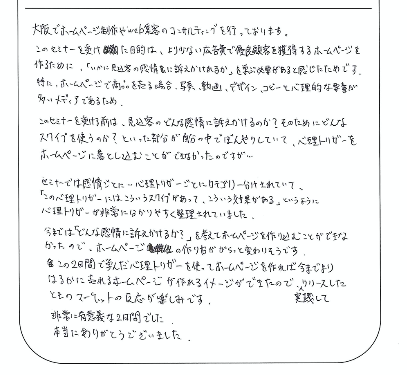 大阪でホームページ制作やweb集客のコンサルティングを行っております。
このセミナーを受けた目的は、より少ない広告費で優良顧客を獲得するホームページを
作るために、「いかに見込客の感情に訴えかけれるか」を学ぶ必要があると感じたためです。
特に、ホームページで商品を売る場合、写真、動画、デザイン、コピーと心理的な要素が
多いメディアであるため。
このセミナーを受ける前は、見込客のどんな感情に訴えかけるのか?そのためにどんな
スワイプを使うのか?といった部分が自分の中でぼんやりしていて、心理トリガーを
ホームページに落とし込むことができなかったのですが…
セミナーでは感情ごとに…心理トリガーごとにカテゴリー分けされていて、
「この心理トリガーにはこういうスワイプがあって、こういう効果がある」というように
心理トリガーが非常にわかりやすく整理されていました。
今までは「どんな感情に訴えかけるか?」を考えてホームページを作り込むことができな
かったので、ホームページの作り方ががらっと変わりそうです。
この2日間で学んだ心理トリガーを使ってホームページを作れば今までより
はるかに売れるホームページが作れるイメージができたので、リリースした
ときのマーケットの反応が楽しみです。
実践して
非常に有意義な2日間でした。
本当にありがとうございました。